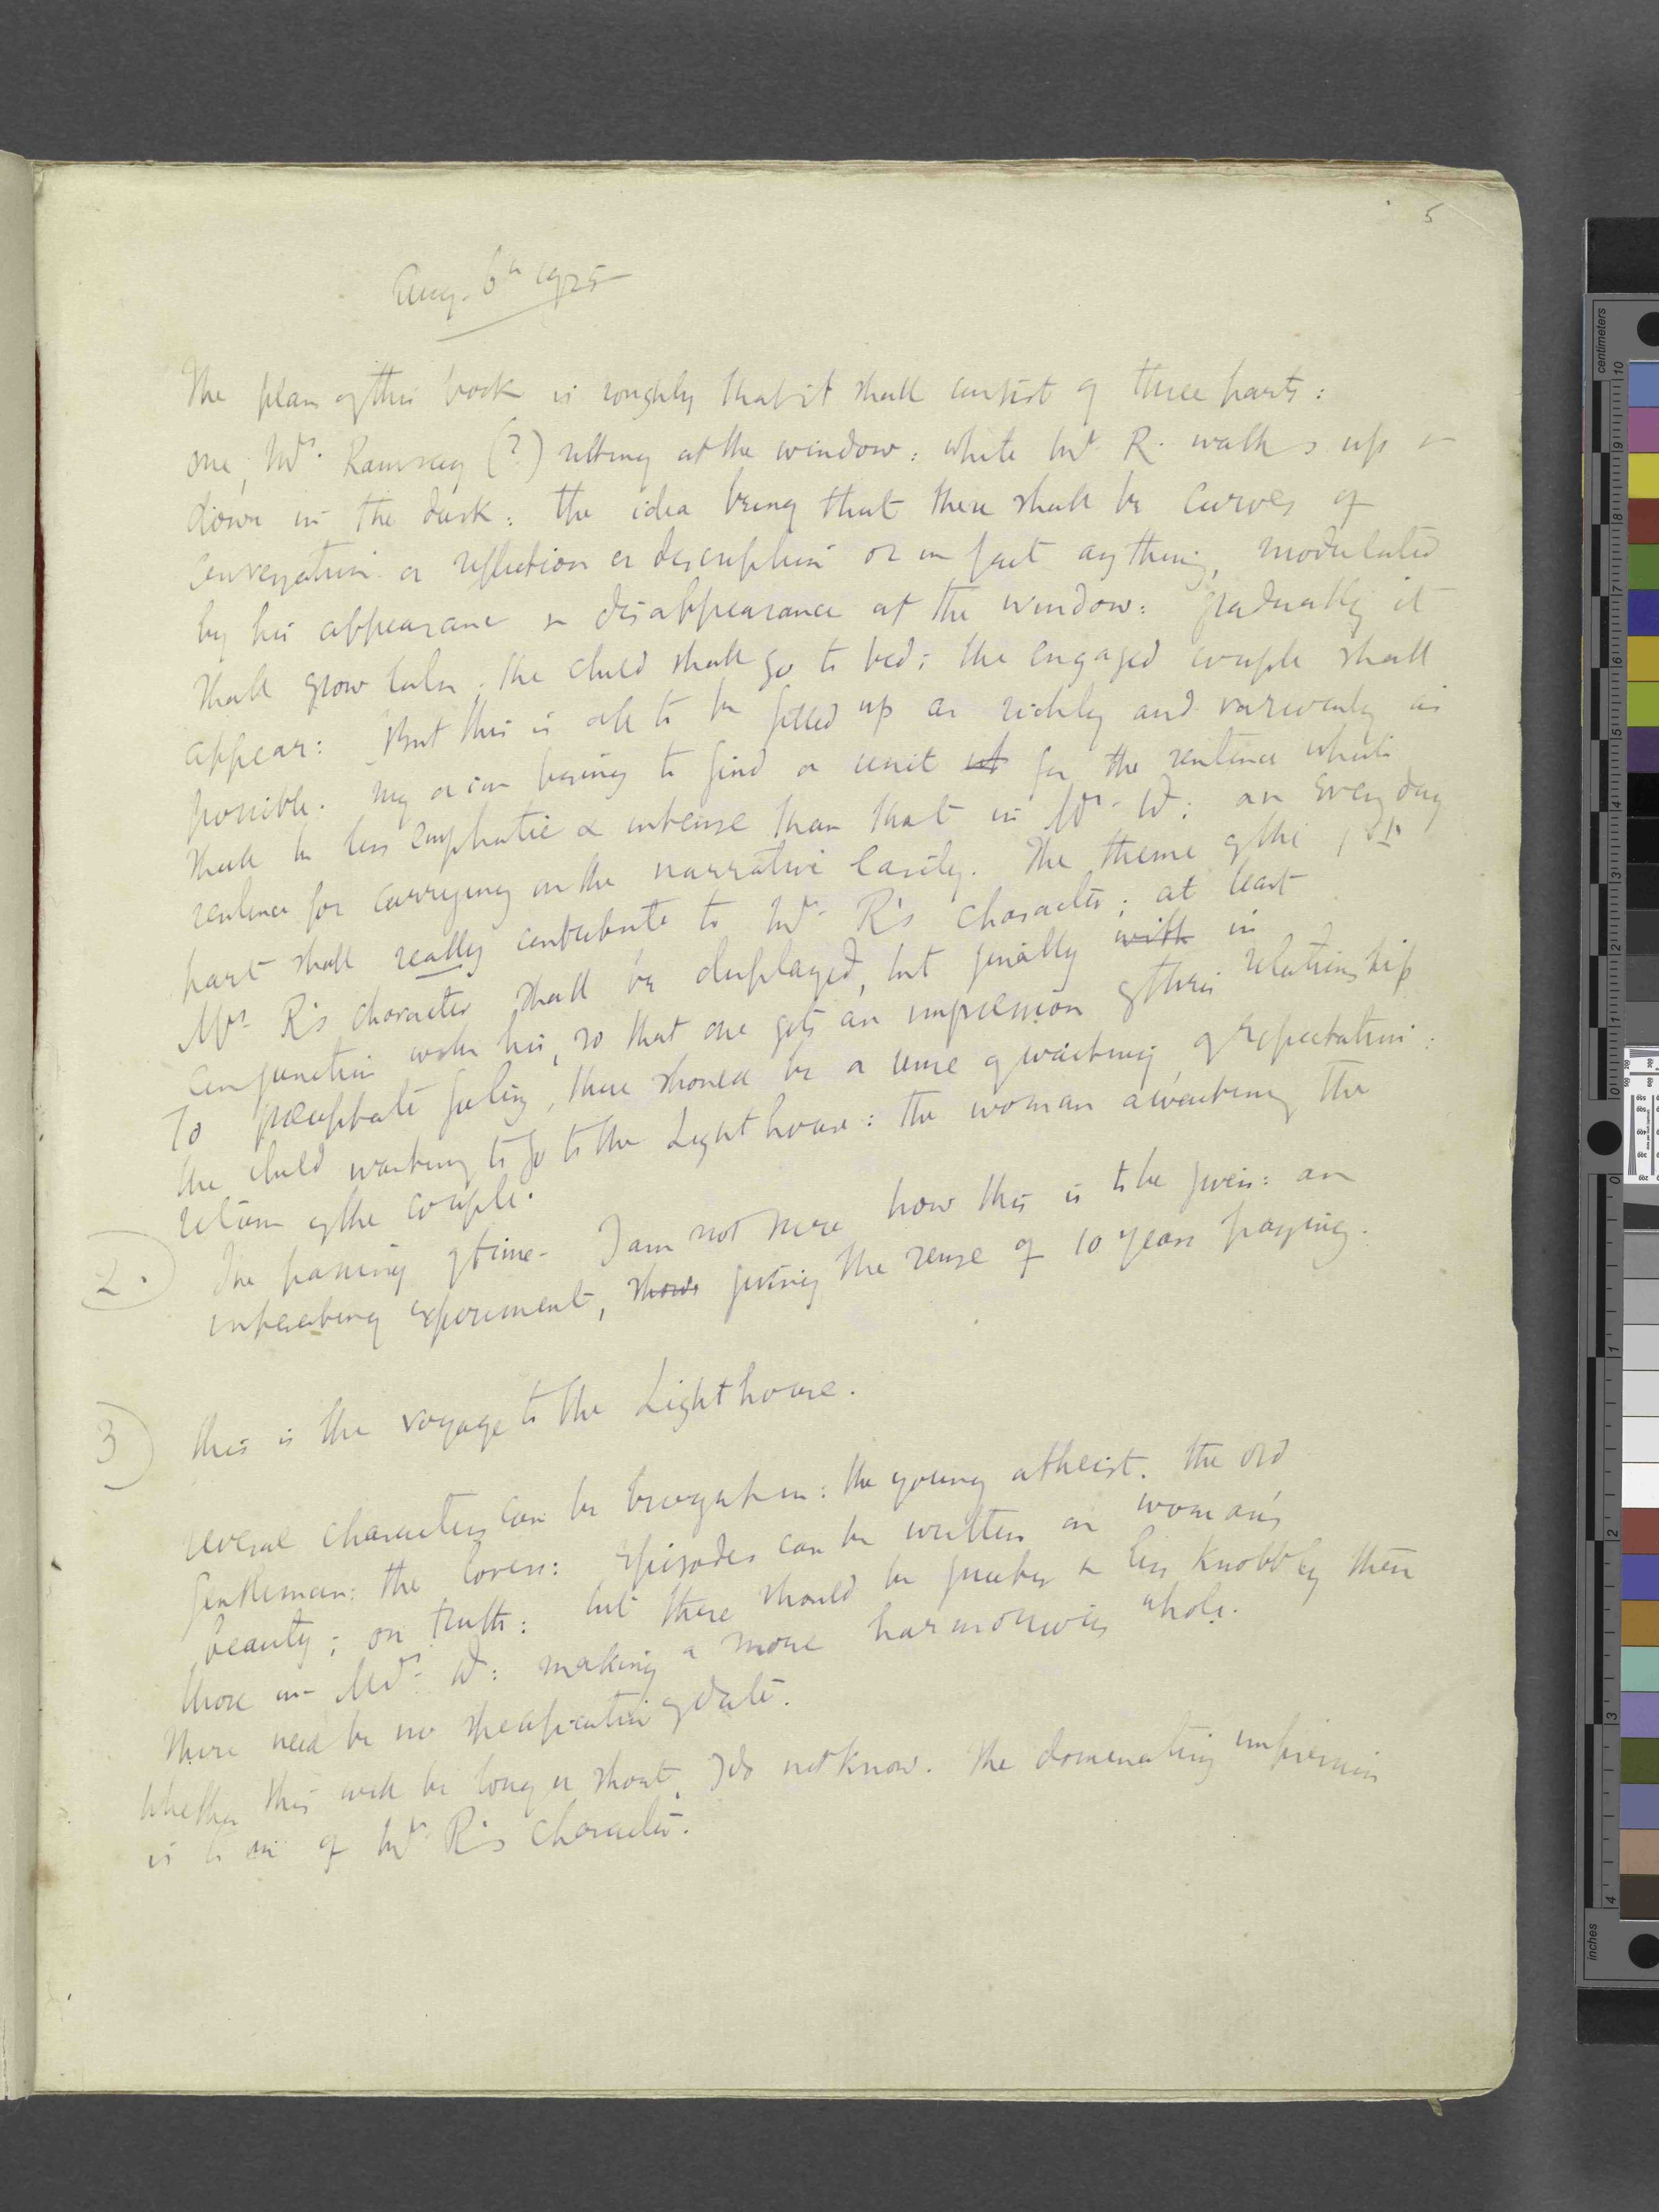 5
Aug. 6th 1925
The plan of this book is roughly that it shall consist of three parts:
one, Mrs. Ramsay (?) sitting at the window: while Mr R. walks up &
down in the dusk: the idea being that there shall be curves of
conversation or reflection or description or in fact anything, modulated
by his appearance & disappearance at the window: gradually it
shall grow later; the child shall go to bed; the engaged couple shall
appear: But this is all to be filled up as richly and variously as
possible. My aim being to find a unit for the sentence which
shall be less emphatic & intense than that in Mrs. D: an everyday
sentence for carrying on the narrative easily. The theme of the 1st
part shall really contribute to Mr. R's character; at least
Mrs. R's character shall be displayed, but finally with in
conjunction with his, so that one gets an impression of their relationship
To precipitate feeling, there should be a sense of waiting, of expectation:
the child waiting to go to the Lighthouse: the woman awaiting the
return of the couple.
2. The passing of time. I am not sure how this is to be given: an
interesting experiment, shows giving the sense of 10 years passing.
3 this is the voyage to the Lighthouse.
several characters can be brought in: the young atheist. the old
gentleman: the lovers: Episodes can be written on woman's
beauty; on truth: but these should be greater & less knobbly than
those in Mrs. D: making a more harmonious whole.
There need be no specification of date.
Whether this will be long or short, I do not know. The dominating impression
is to be of Mrs R's character.